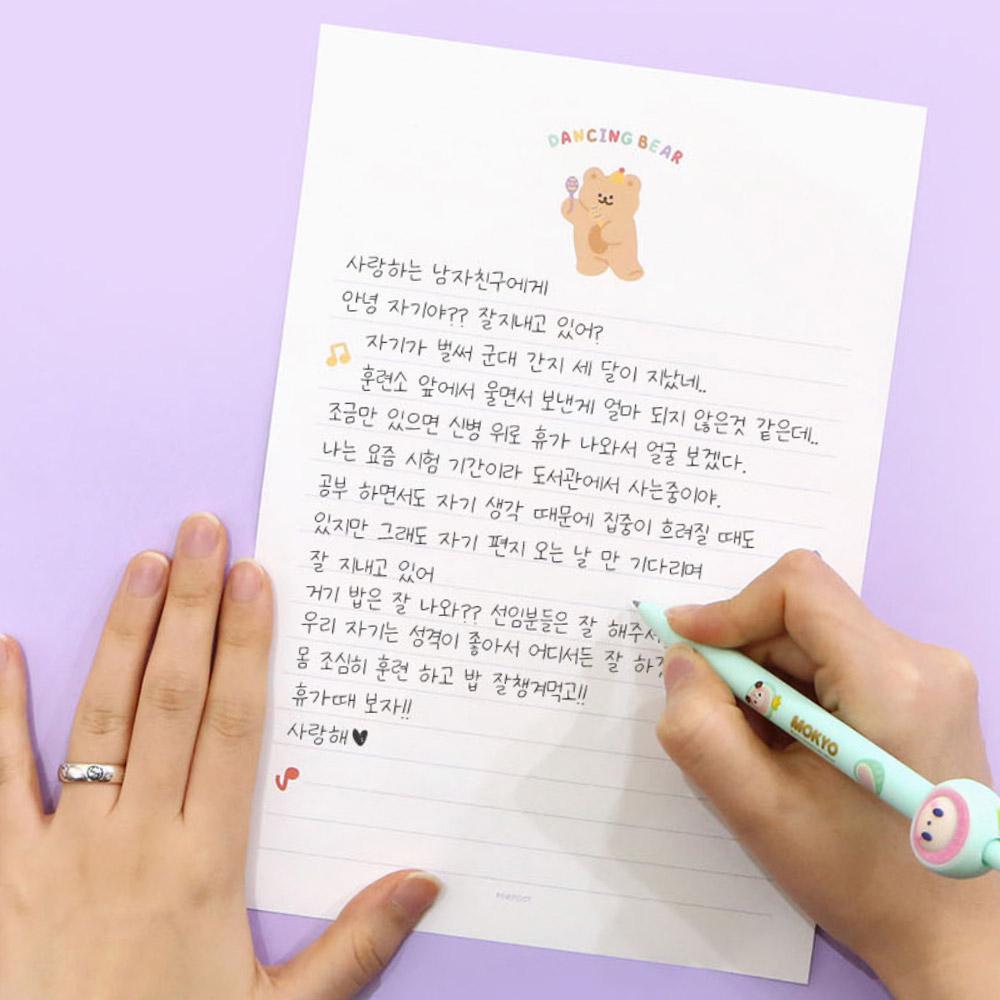 DANCING BEAR
사랑하는 남자친구에게
안녕 자기야?? 잘지내고 있어?
자기가 벌써 군대 간지 세 달이 지났네..
훈련소 앞에서 울면서 보낸게 얼마 되지 않은것 같은데..
조금만 있으면 신병 위로 휴가 나와서 얼굴 보겠다.
나는 요즘 시험 기간이라 도서관에서 사는중이야.
공부 하면서도 자기 생각 때문에 집중이 흐려질 때도
있지만 그래도 자기 편지 오는 날 만 기다리며
잘 지내고 있어
거기 밥은 잘 나와?? 선임분들은 잘 해주시
우리 자기는 성격이 좋아서 어디서든 잘 하
몸 조심히 훈련 하고 밥 잘챙겨먹고!!
휴가때 보자!!
사랑해♥
MOKYO